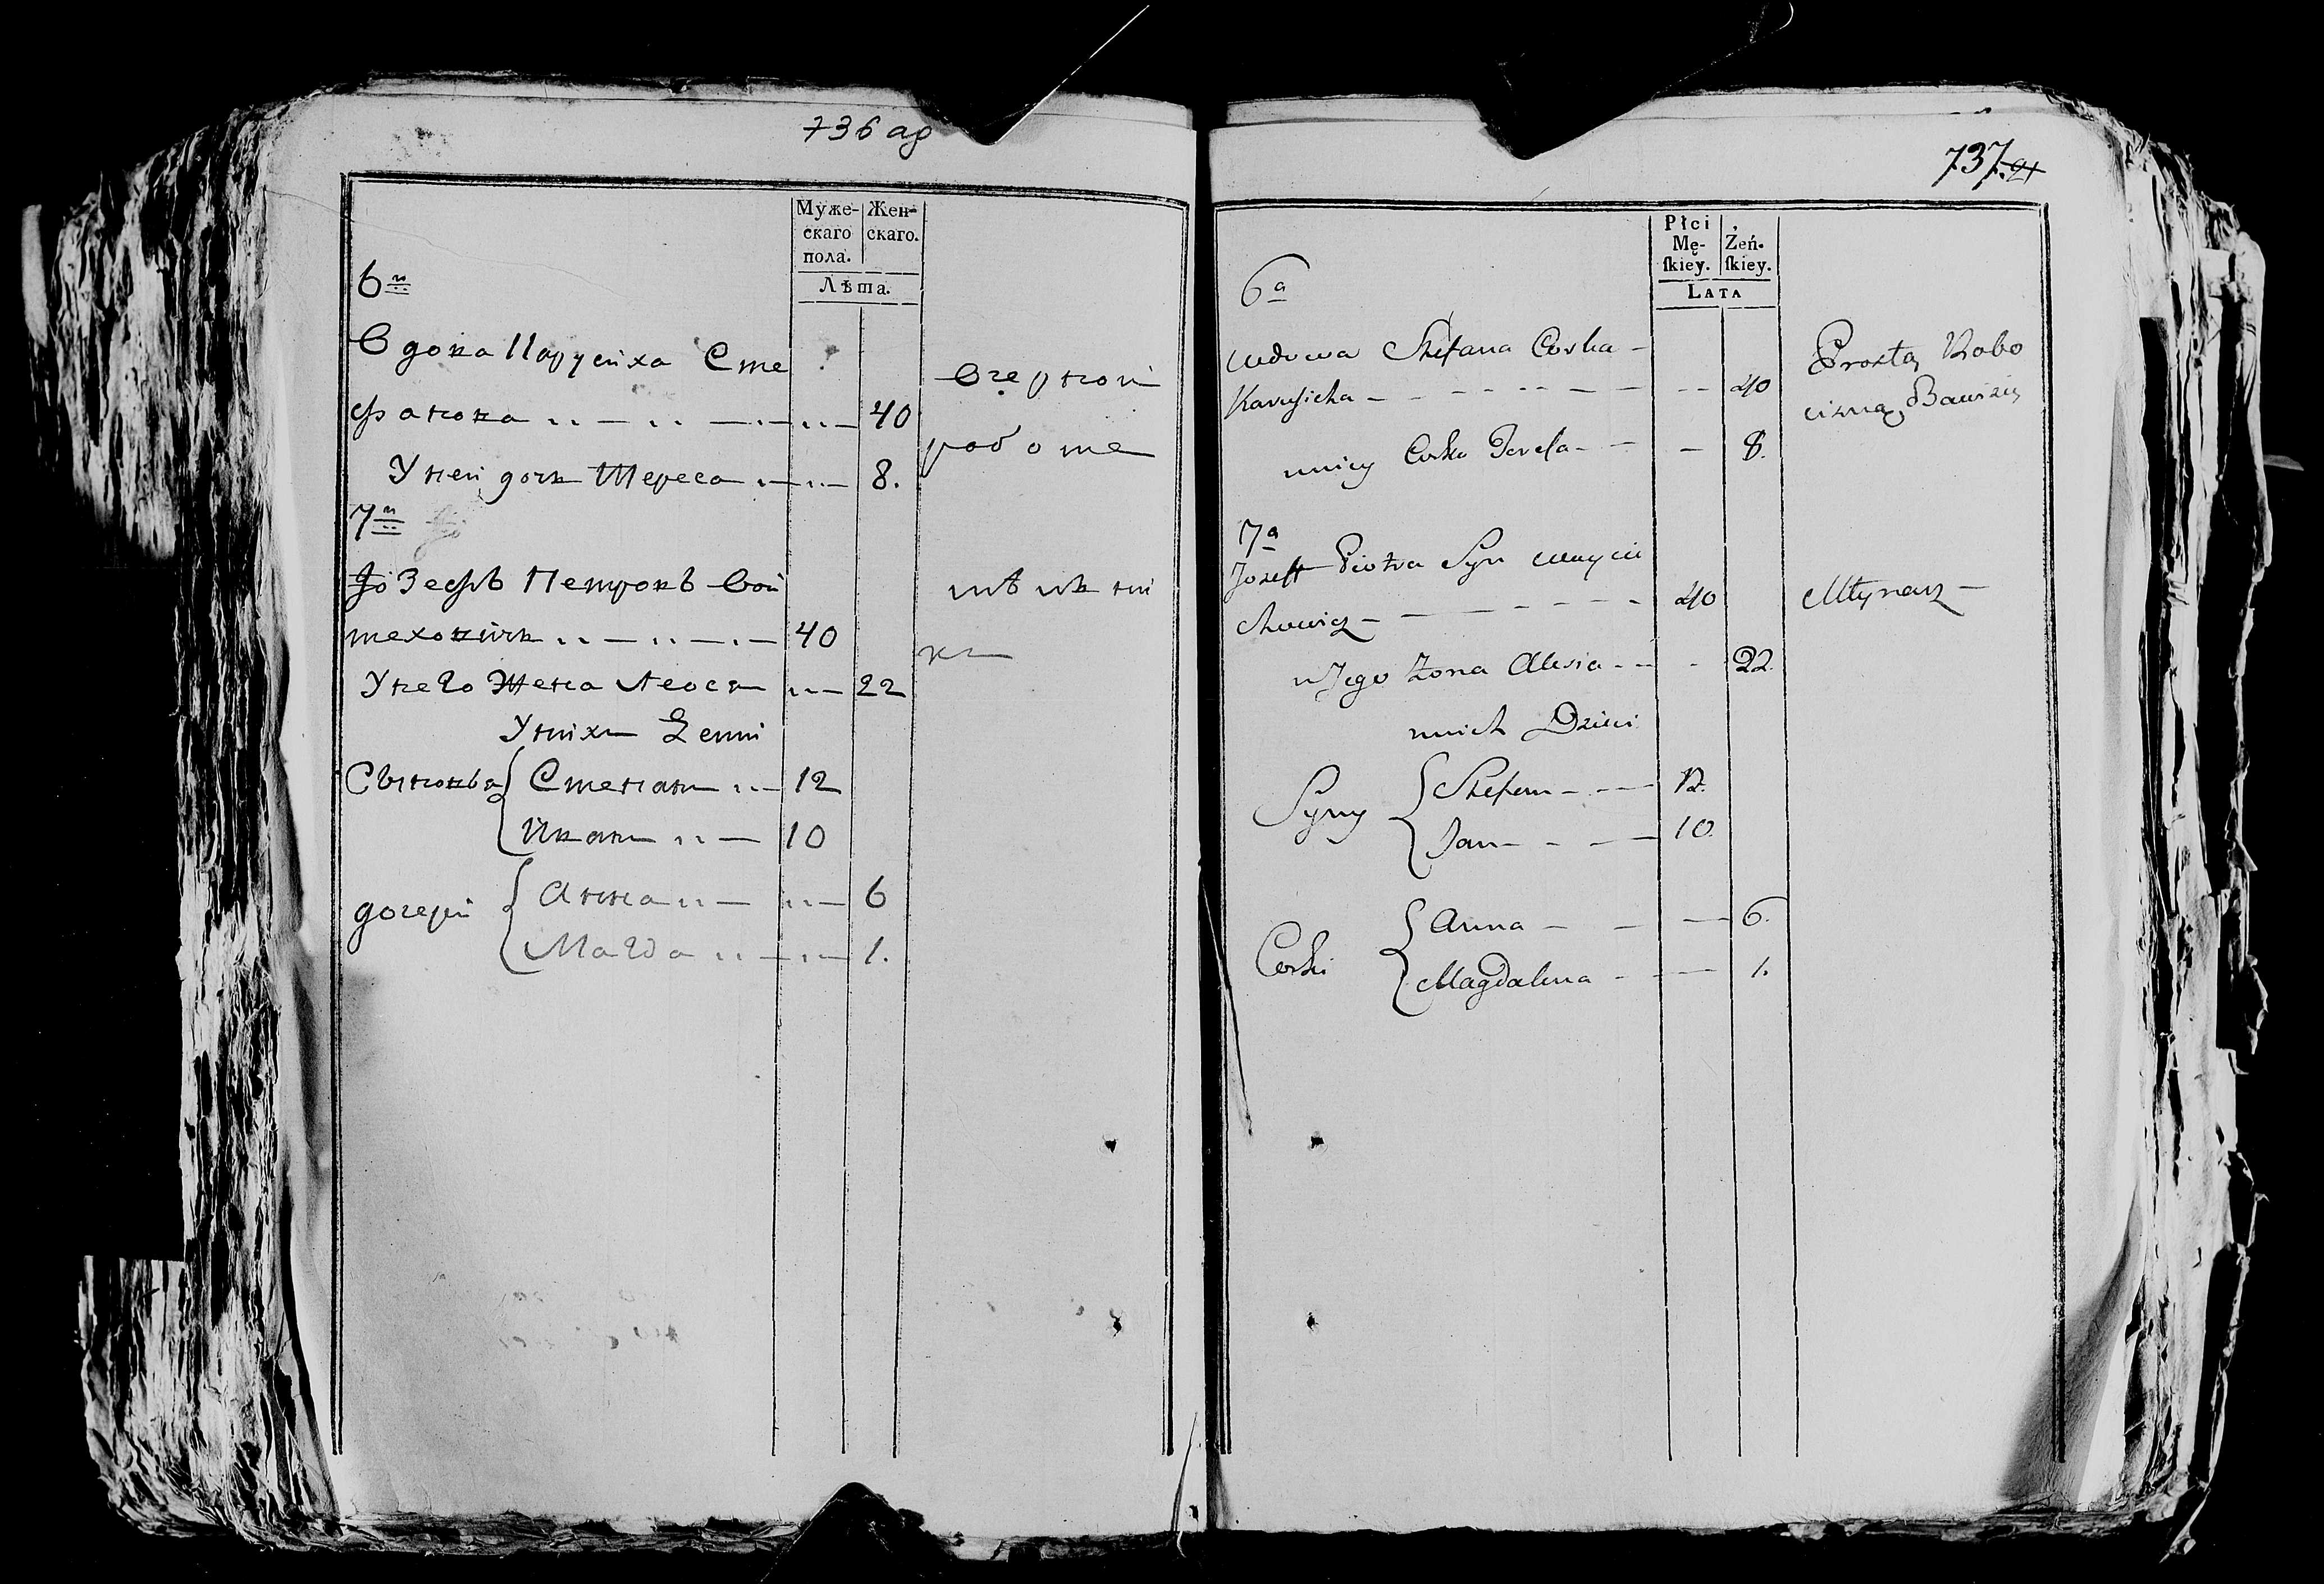 736 ад
Муже-
скаго
пола.
Жен-
скаго.
Лѣта.
6я
Вдова Карусиха Сте
фанова 40
Вчерной
работе
У ней дочь Тереса 8.
7я
Іозефъ Петровъ Вой
техович 40
У него Жена Леося 22
У них дети
Сыновья Степан 12
Иван 10
дочери Анна 6
Магда 1.
737.
Płci
Mę-
ſkiey.
Żeń-
ſkiey.
LATA
6a
wdowa Stefana Corka
Karusicha 40
Prostą Robo
cizną Bawiący
uniey Corka Teresa 8.
7a
Jozeff Piotra Syn Woycie
chowicz 40
Młynarz
u Jego Zona Alesia 22.
unich Dzieci
Syny Stefan 12.
Jan 10.
Corki Anna 6.
Magdalena 1.